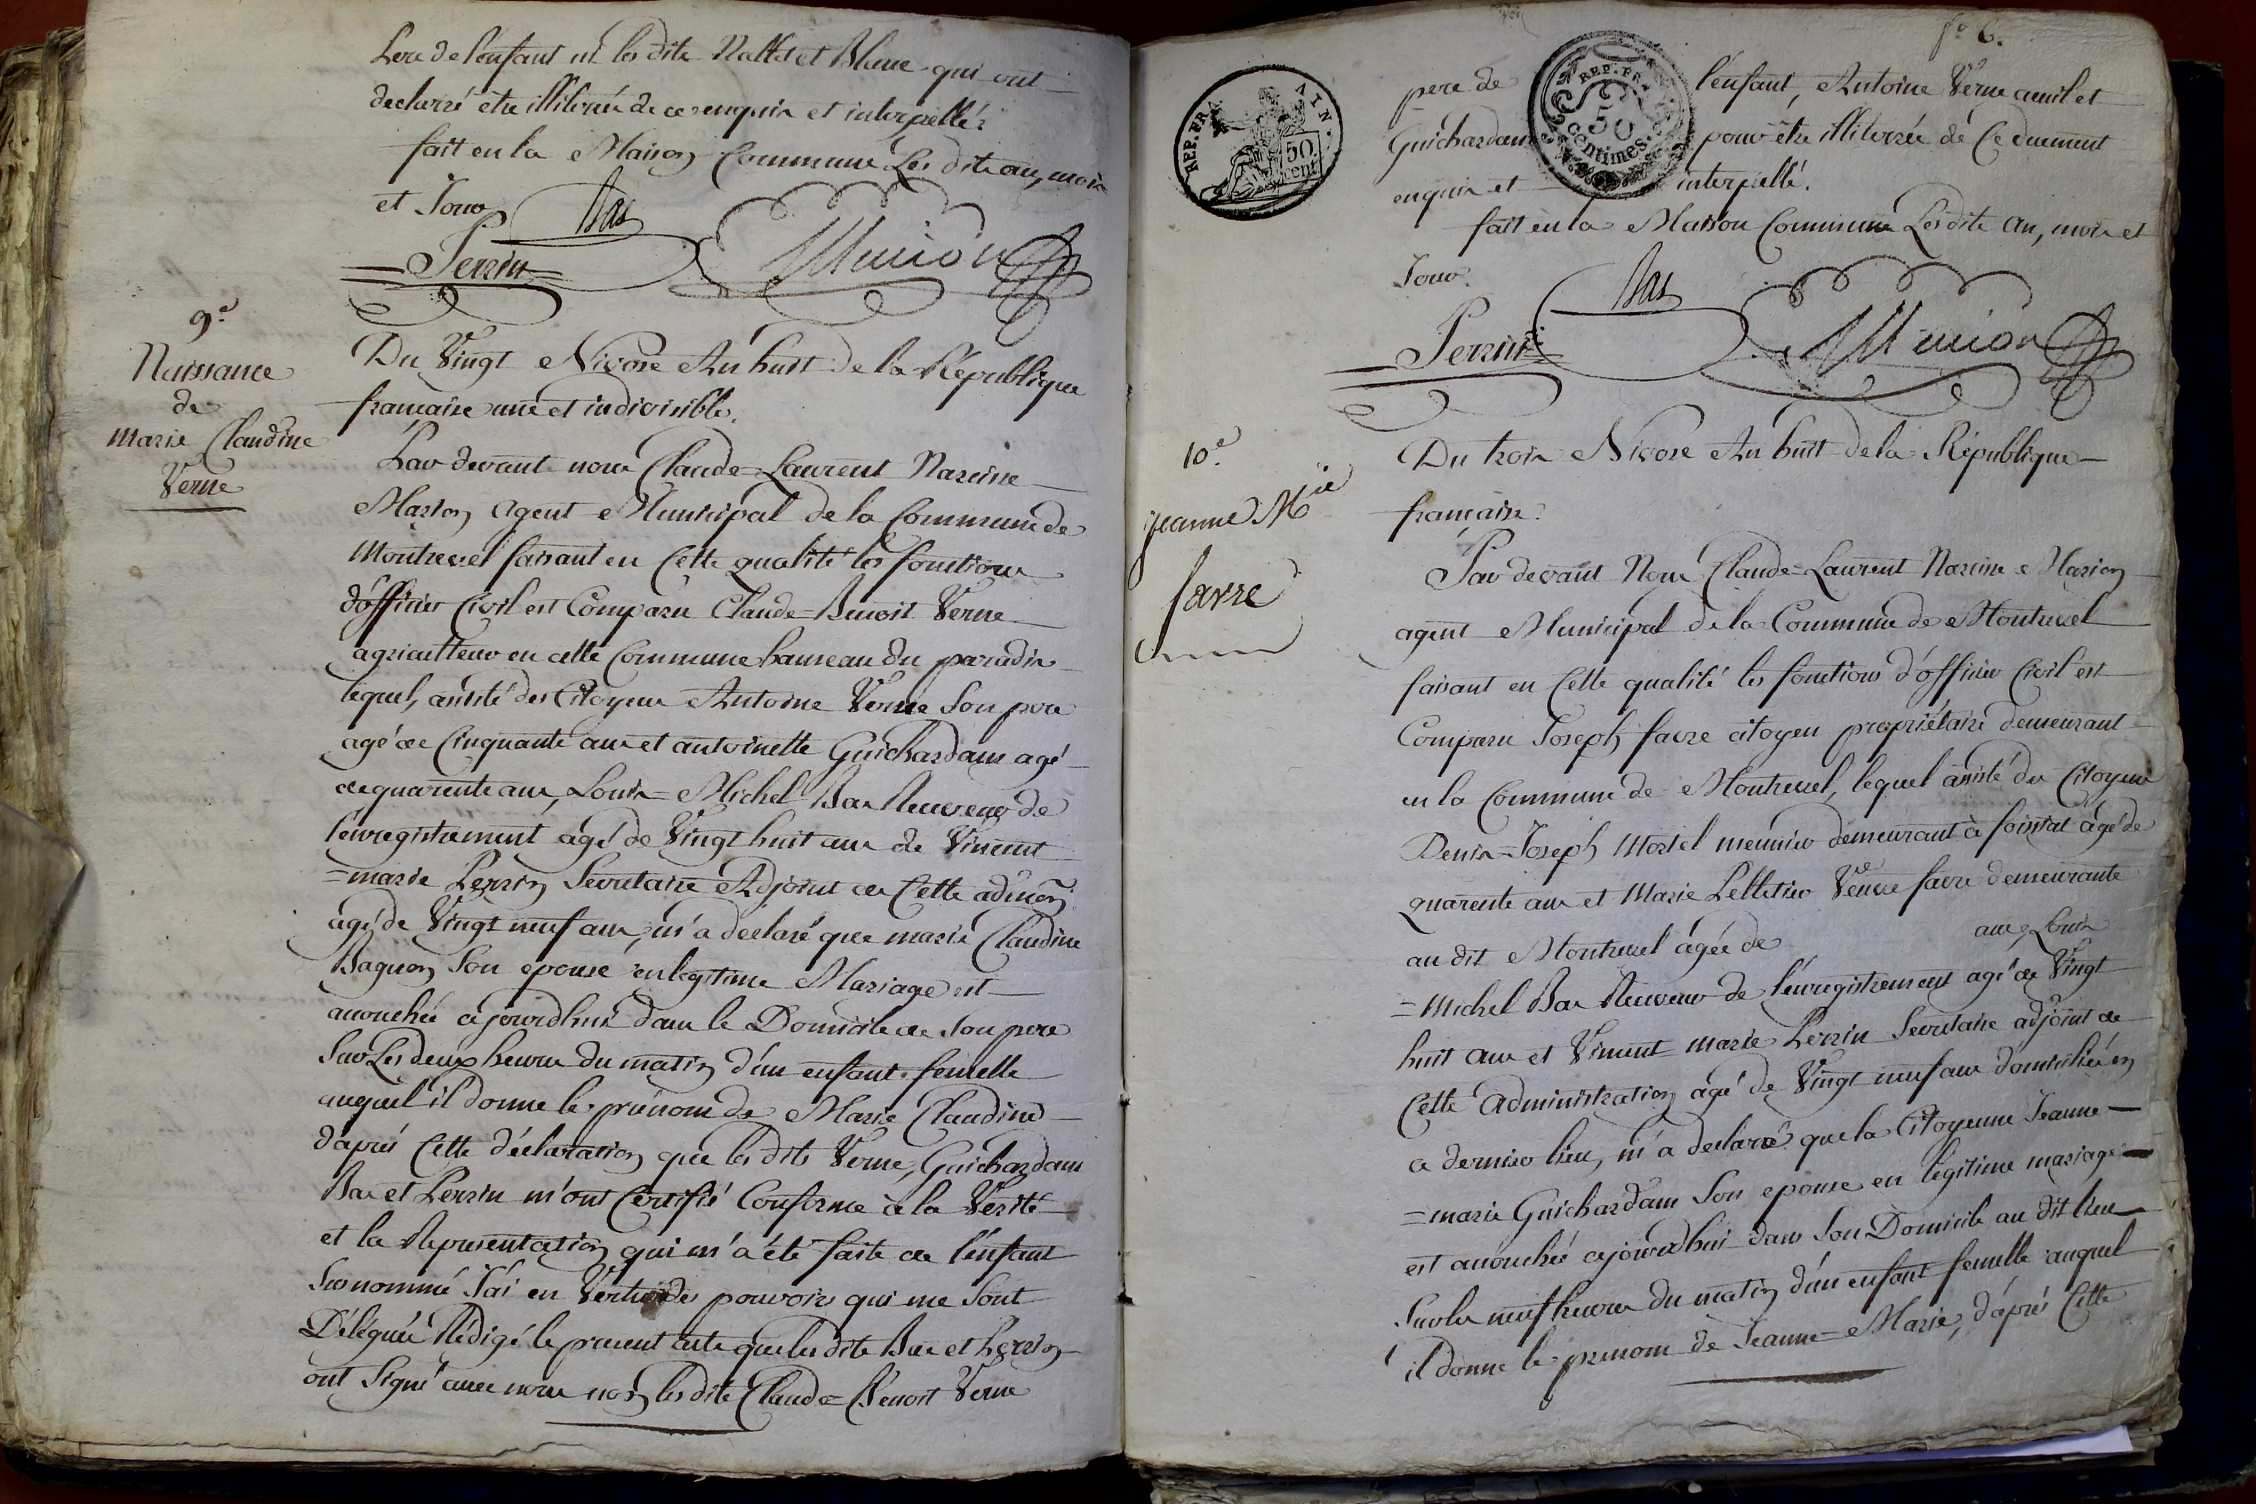 Pere de l'enfant ni les dits Nallet et Blanc qui ont
declarré être illiterés de ce enquis et interpellés
fait en la Maison Commune Les dits an, mois
et Jour
Bas
Perrin Marion
9.e
Naissance
de
Marie Claudine
Verne
Du Vingt Nivose An huit de la République
française une et indivisible.
Par devant nous Claude=Laurent Narcisse
Marion agent Municipal de la Commune de
Montrevel faisant en Cette qualité les fonctions
d'officier Civil est Comparu Claude=Benoit Verne
agriculteur en cette Commune hameau du paradis
lequel, assisté des Citoyens Antoine Verne Son pere
agé de Cinquante ans et antoinette Guichardan agé
de quarente ans, Louis=Michel Bas Receveur de
l'enregistrement agé de Vingt huit ans de Vincent
=marie Perrin Secretaire Adjoint de Cette adm.on
agé de Vingt neuf ans, m'a déclaré que marie Claudine
Bagnon Son epouse en legitime Mariage est
accouchée cejourd'hui dans le Domicile de Son pere
Sur Les deux heures du matin d'un enfant femelle
auquel il donne le prénom de Marie Claudine
d'après Cette déclaration que les dits Verne, Guichardan
Bas et Perrin m'ont Certifié Conforme à la Verité
et la Representation qui m'a été faite de l'enfant
Susnommé J'ai en Vertu des pouvoirs qui me Sont
Délégués Rédigé le present acte que les dits Bas et Perrin
ont Signé avec nous non les dits Claude=Benoit Verne
f.o 6.
REP. FRA AYN.
50 cent
REP. FRA
50
centimes
pere de l'enfant, Antoine Verne aieul et
Guichardan pour être illiterés de Ce duement
enquis et interpellé.
fait en la Maison Commune Les dits an, mois et
Jour.
Bas
Perrin Marion
10.e
jeanne M.ie
favre
Du trois Nivose An huit de la République
française.
Par devant Nous Claude=Laurent Narcisse Marion
agent Municipal de la Commune de Montrevel
faisant en Cette qualité les fonctions d'officier Civil est
Comparu Joseph favre citoyen propriétaire demeurant
en la Commune de Montrevel, lequel assisté du Citoyen
Denis=Joseph Morel meunier demeurant à foissiat agé de
quarente ans et Marie Pelletier V.e Veuve favre demeurante
au dit Montrevel agée de ans, Louis
=Michel Bas Receveur de l'enregistrement agé de Vingt
huit ans et Vincent marie Perrin Secretaire adjoint de
Cette Administration agé de Vingt neuf ans domiciliés en
ce dernier lieu, m'a declarré que la Citoyenne Jeanne
=marie Guichardan Son epouse en legitime mariage
est accouchée cejourd'hui dans Son Domicile au dit lieu
Sur les neuf heures du matin d'un enfant femelle auquel
il donne le prenom de Jeanne=Marie, d'après Cette